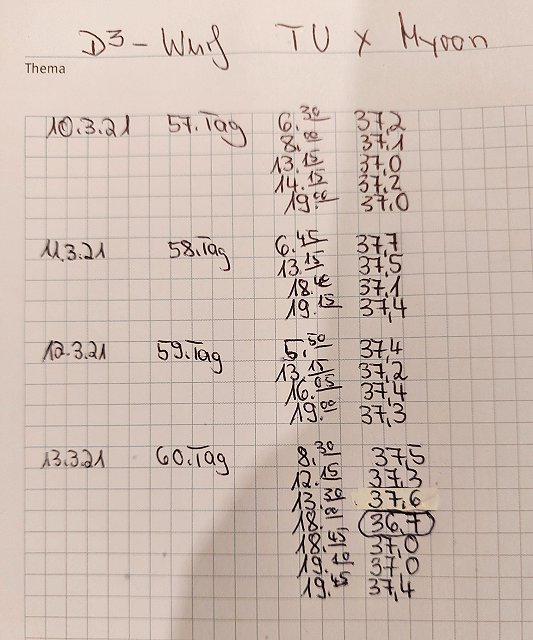 D³ - Wurf TU x Myoon
Thema
10.3.21 57.Tag 6.30 37,2
8.00 37,1
13.15 37,0
14.15 37,2
19.00 37,0
11.3.21 58.Tag 6.45 37,7
13.15 37,5
18.40 37,1
19.15 37,4
12.3.21 59.Tag 5.50 37,4
13.15 37,2
16.05 37,4
19.00 37,3
13.3.21 60.Tag 8.30 37,5
12.15 37,3
13.30 37,6
18.00 36,7
18.45 37,0
19.10 37,0
19.45 37,4